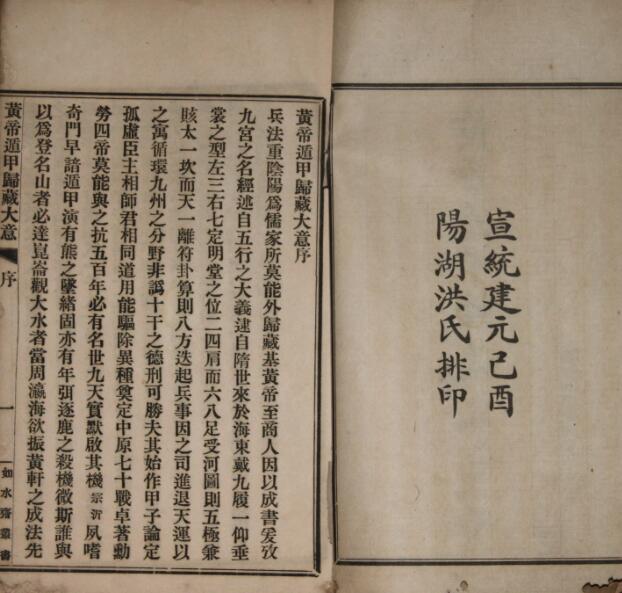 宣統建元己酉
陽湖洪氏排印
黃帝遁甲歸藏大意序
兵法重陰陽爲儒家所莫能外歸藏基黃帝至商人因以成書爰攷
九宮之名經述自五行之大義逮自隋世來於海東戴九履一仰垂
裳之型左三右七定明堂之位二四肩而六八足受河圖則五極兼
賅太一坎而天一離符卦算則八方迭起兵事因之司進退天運以
之寓循環九州之分野非譌十干之德刑可勝夫其始作甲子論定
孤虛臣主相師君相同道用能驅除異種奠定中原七十戰卓著勳
勞四帝莫能與之抗五百年必有名世九天實默啟其機宗沂夙嗜
奇門早諳遁甲演有熊之墜緒固亦有年弭逐鹿之殺機微斯誰與
以爲登名山者必達崑崙觀大水者當周瀛海欲振黃軒之成法先
黃帝遁甲歸藏大意
序
一
如水齋叢書